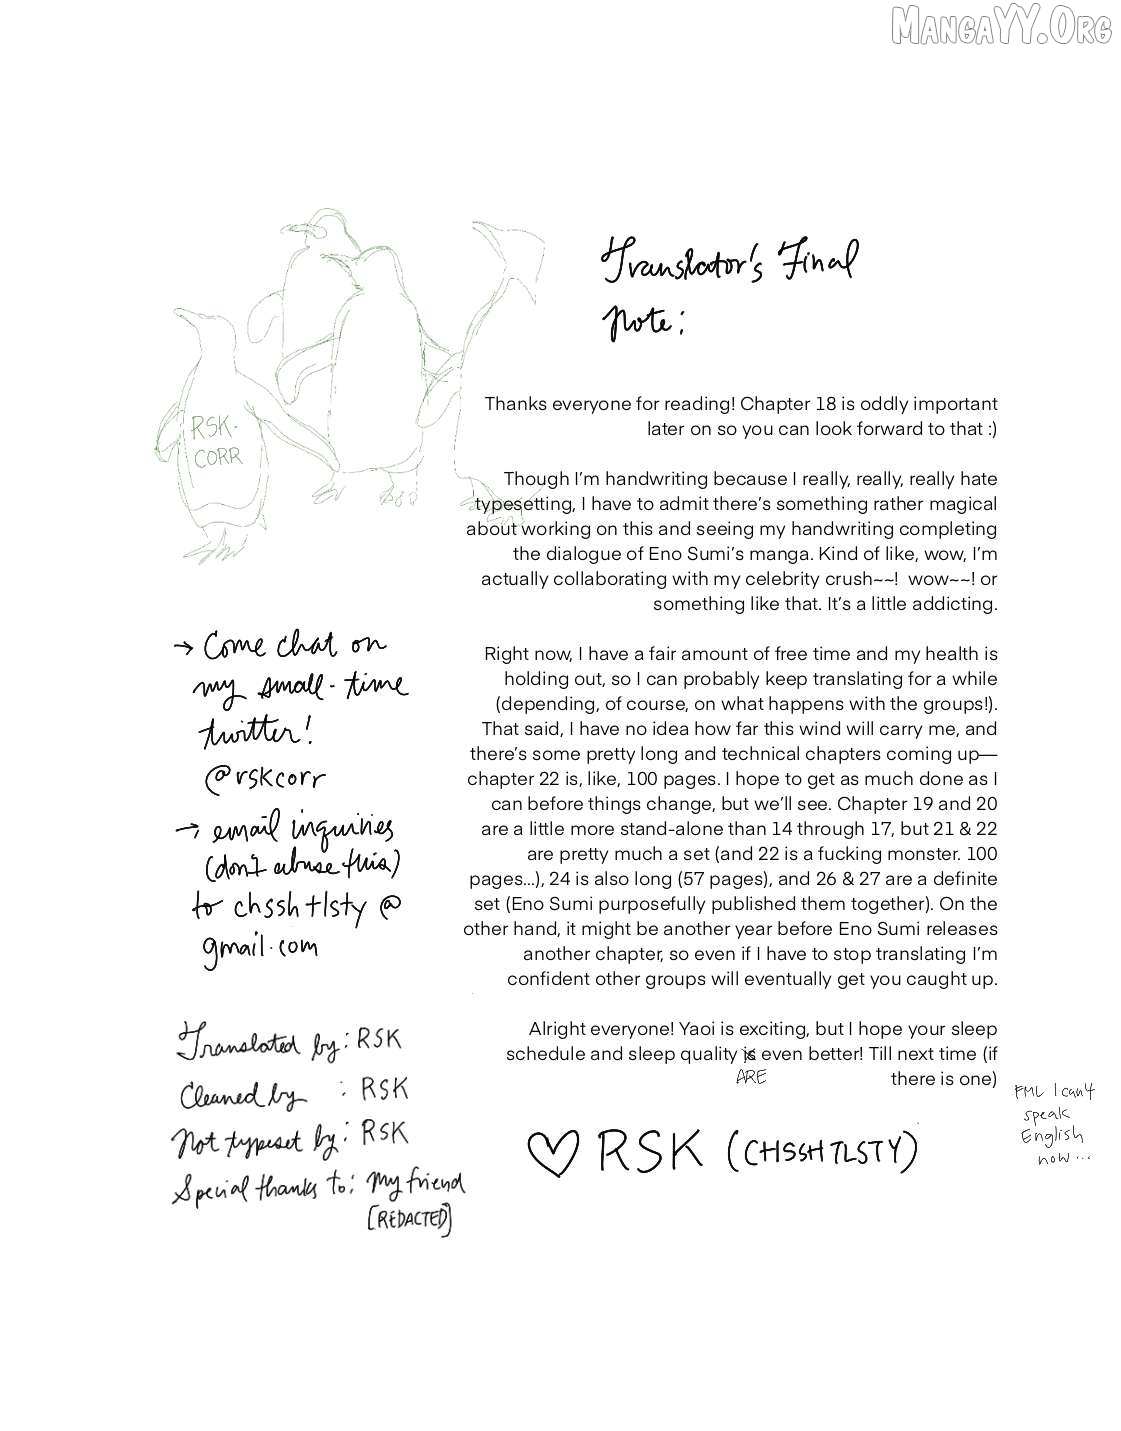 MangaYY.Org
RSK-
CORR
Translator's Final
Note:
Thanks everyone for reading! Chapter 18 is oddly important
later on so you can look forward to that :)
Though I'm handwriting because I really, really, really hate
typesetting, I have to admit there's something rather magical
about working on this and seeing my handwriting completing
the dialogue of Eno Sumi's manga. Kind of like, wow, I'm
actually collaborating with my celebrity crush~~! wow~~! or
something like that. It's a little addicting.
Right now, I have a fair amount of free time and my health is
holding out, so I can probably keep translating for a while
(depending, of course, on what happens with the groups!).
That said, I have no idea how far this wind will carry me, and
there's some pretty long and technical chapters coming up—
chapter 22 is, like, 100 pages. I hope to get as much done as I
can before things change, but we'll see. Chapter 19 and 20
are a little more stand-alone than 14 through 17, but 21 & 22
are pretty much a set (and 22 is a fucking monster. 100
pages...), 24 is also long (57 pages), and 26 & 27 are a definite
set (Eno Sumi purposefully published them together). On the
other hand, it might be another year before Eno Sumi releases
another chapter, so even if I have to stop translating I'm
confident other groups will eventually get you caught up.
Alright everyone! Yaoi is exciting, but I hope your sleep
schedule and sleep quality is even better! Till next time (if
ARE
there is one)
FML I can't
speak
English
now...
♡ RSK (CHSSHTLSTY)
→ Come chat on
my small-time
twitter!
@rskcorr
→ email inquiries
(don't abuse this)
to chsshtlsty@
gmail.com
Translated by: RSK
Cleaned by : RSK
Not typeset by: RSK
Special thanks to: my friend
[REDACTED]